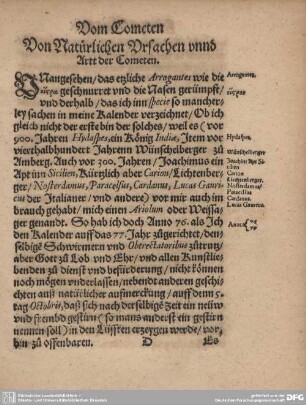 Vom Cometen
Von Natürlichen Vrsachen vnnd
Artt der Cometen.
Angesehen/das etzliche Arrogantes wie die
geschnurret vnd die Nasen gerümpft/
vnd derhalb/das ich inn specie so mancher-
ley sachen in meine Kalender verzeichnet/Ob ich
gleich nicht der erste bin der solches/weil es (vor
900. Jahren Hydaspes, ein König Indiæ, Item vor
vierhundert Jahrenn Wünschelberger zu
Amberg. Auch vor 300. Jahren/Joachimus ein
Apt inn Sicilien, Kürtzlich aber Carion/Lichtenber-
ger/Nosterdamus, Paracelsus, Cardanus, Lucas Gauri-
cus der Italianer/vnd andere) vor mir auch im
brauch gehabt/mich einen Ariolum oder Weissa-
ger genandt. So hab ich doch Anno 76. als Ich
den Kalender auff das 77. Jahr zugerichtet/den-
selbige Schwirmern vnd Obtrectatoribus zu trutz/
aber Gott zu Lob vnd Ehr/vnd allen Kunstlie-
benden zu dienst vnd befürderung/nicht können
noch mögen vnderlassen/nebendt anderen geschich-
ten auß natürlicher auffmerckung/auff denn 5.
tag Octobris, daß sich nach derselbige Zeit ein new
vnd frembd gestirn (so mans anderst ein gestirn
nennen soll) in den Lüfften erzeygen werde/vor-
hin zu offenbaren.
D Es
Arrogantes.
Hydaspes.
Wünschelberger
Joachim Apt Si-
cilien
Carion
Liechtenberger.
Nosterdamus
Paracelsus
Cardanus.
Lucas Gauricus.
Anno 76
77
DFG